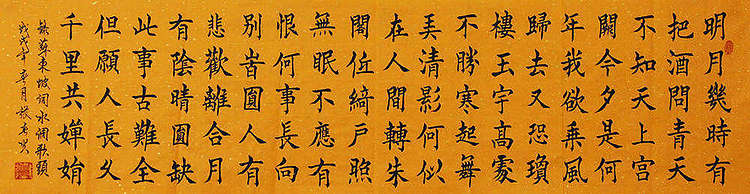 明月幾時有
把酒問青天
不知天上宮
闕今夕是何
年我欲乘風
歸去又恐瓊
樓玉宇高處
不勝寒起舞
弄清影何似
在人間轉朱
閣低綺戶照
無眠不應有
恨何事長向
別時圓人有
悲歡離合月
有陰晴圓缺
此事古難全
但願人長久
千里共嬋娟
錄蘇東坡詞水調歌頭
戊戌年春月